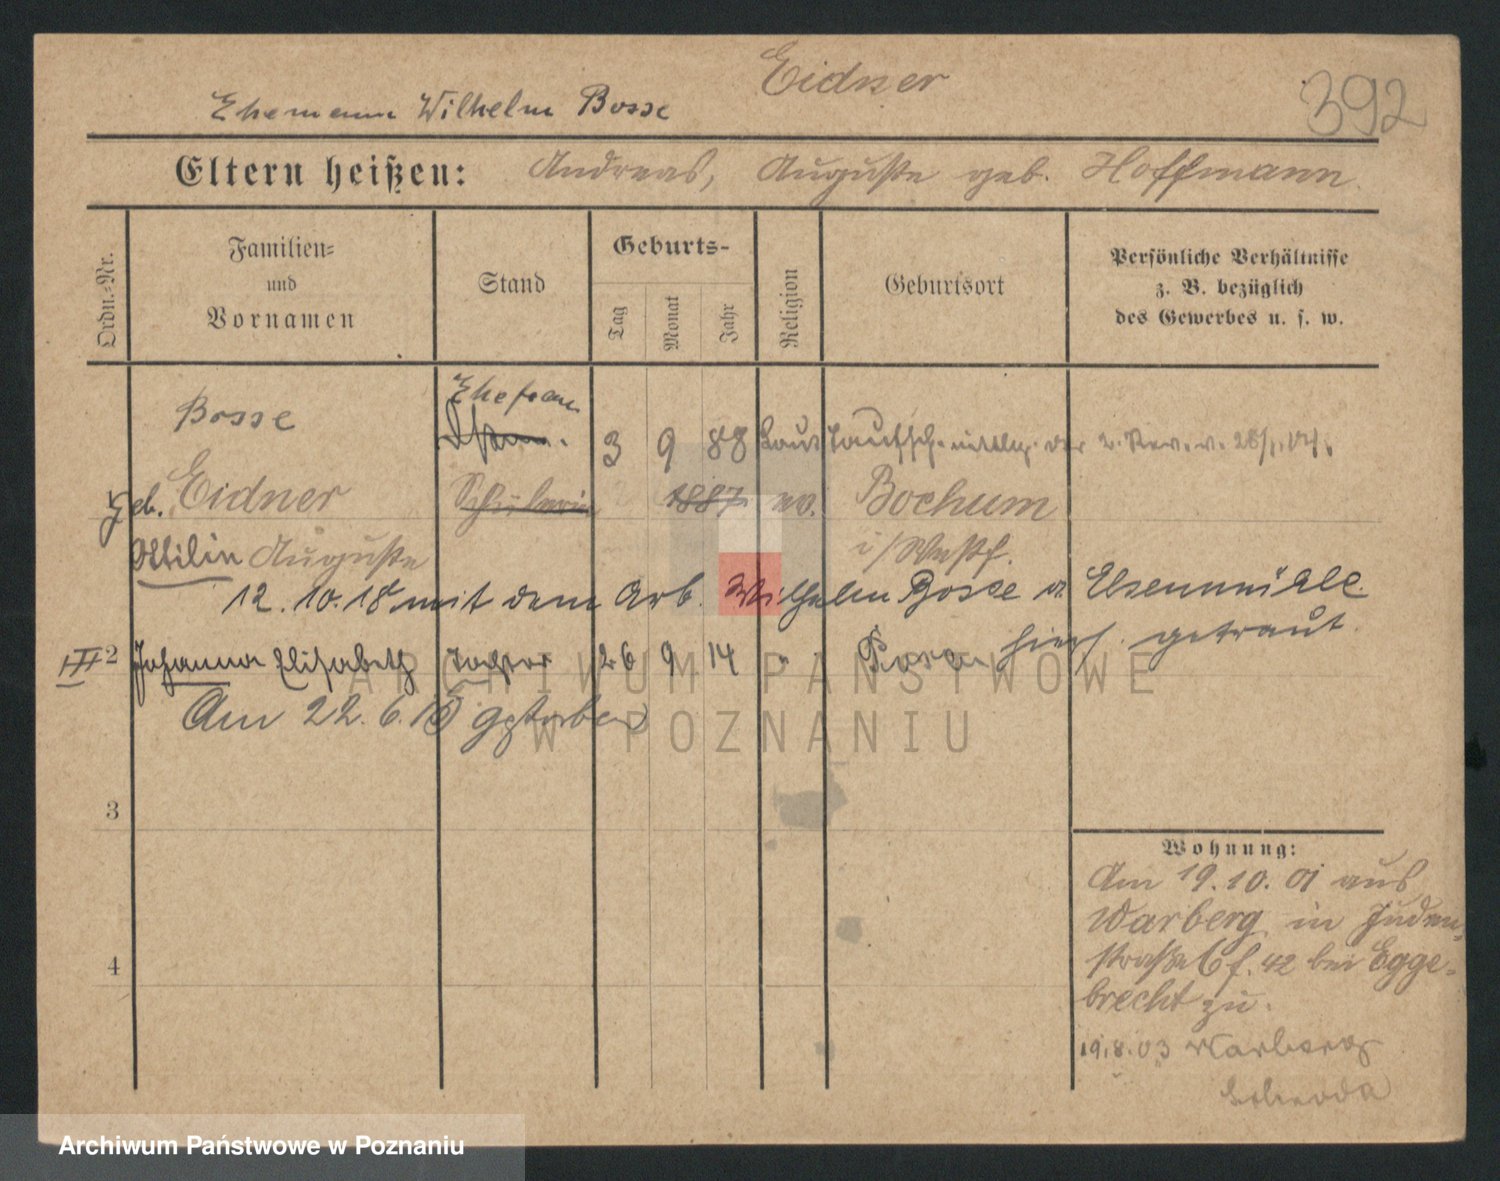 Eidner
392
Ehemann Wilhelm Bosse
Eltern heißen: Andreas, Auguste geb. Hoffmann.
Ordn.-Nr.
Familien-
und
Vornamen
Stand
Geburts-
Tag
Monat
Jahr
Religion
Geburtsort
Persönliche Verhältnisse
z. B. bezüglich
des Gewerbes u. s. w.
Bosse Ehefrau
3 9 88 Laut
geb. Eidner Schülerin 1887 ev. Bochum
Ottilie Auguste i/Westf.
12.10.18 mit dem Arb. Wilhelm Bosse a. Elsenmühle
hier getraut.
2 Johanna Elisabeth Tochter 26 9 14 " Posen
Am 22.6.15 gestorben
3
4
Wohnung:
Am 19.10.01 aus
Warberg in Juden-
straße 6 f. 42 bei Egge-
brecht zu.
19.8.03 Warberg
Schroda
ARCHIWUM PAŃSTWOWE
W POZNANIU
Archiwum Państwowe w Poznaniu